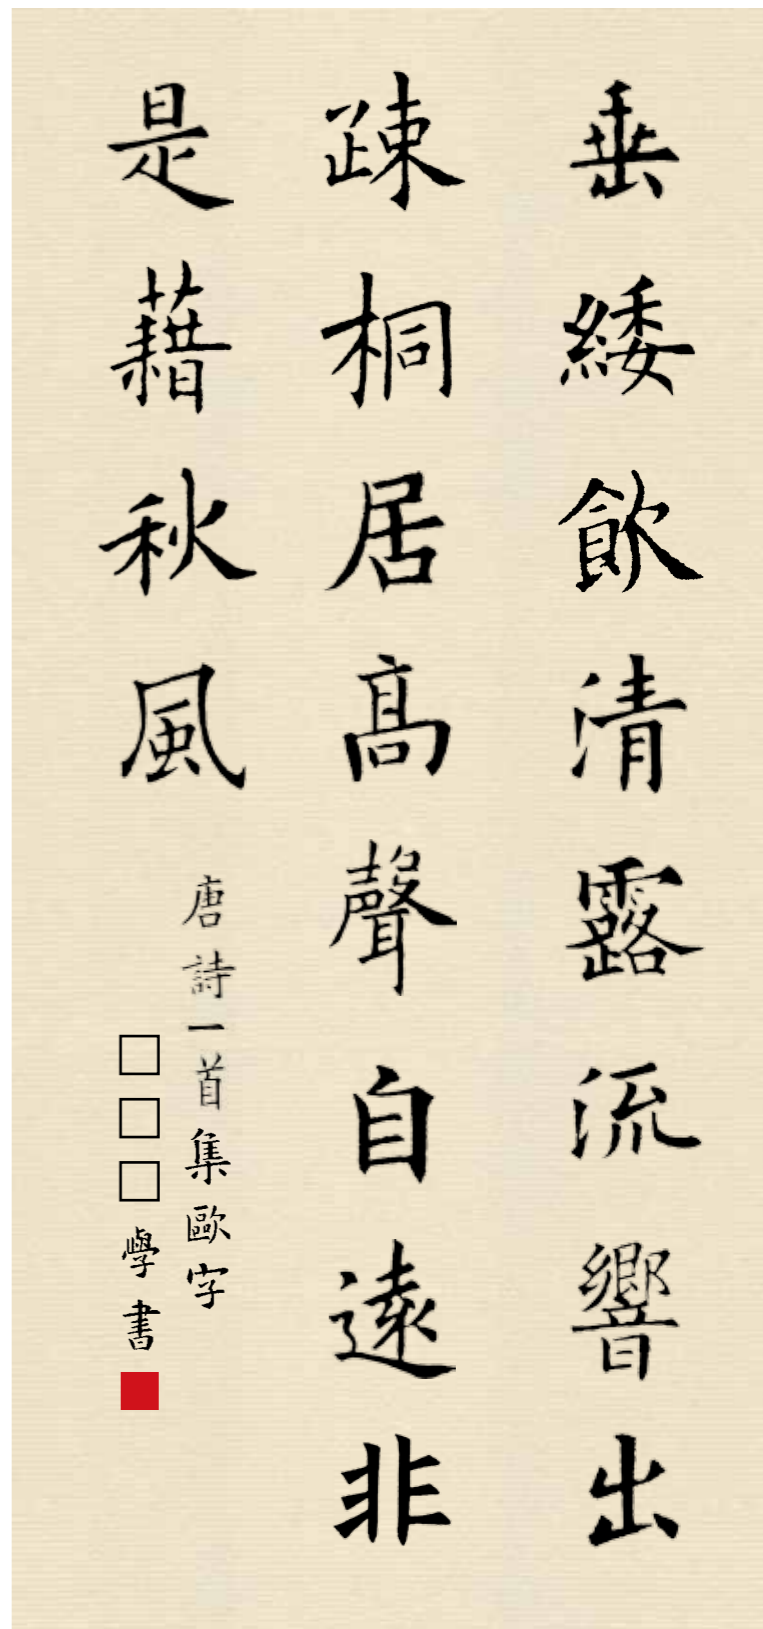 垂緌飲清露流響出
踈桐居高聲自遠非
是藉秋風
唐詩一首集歐字
□□□學書